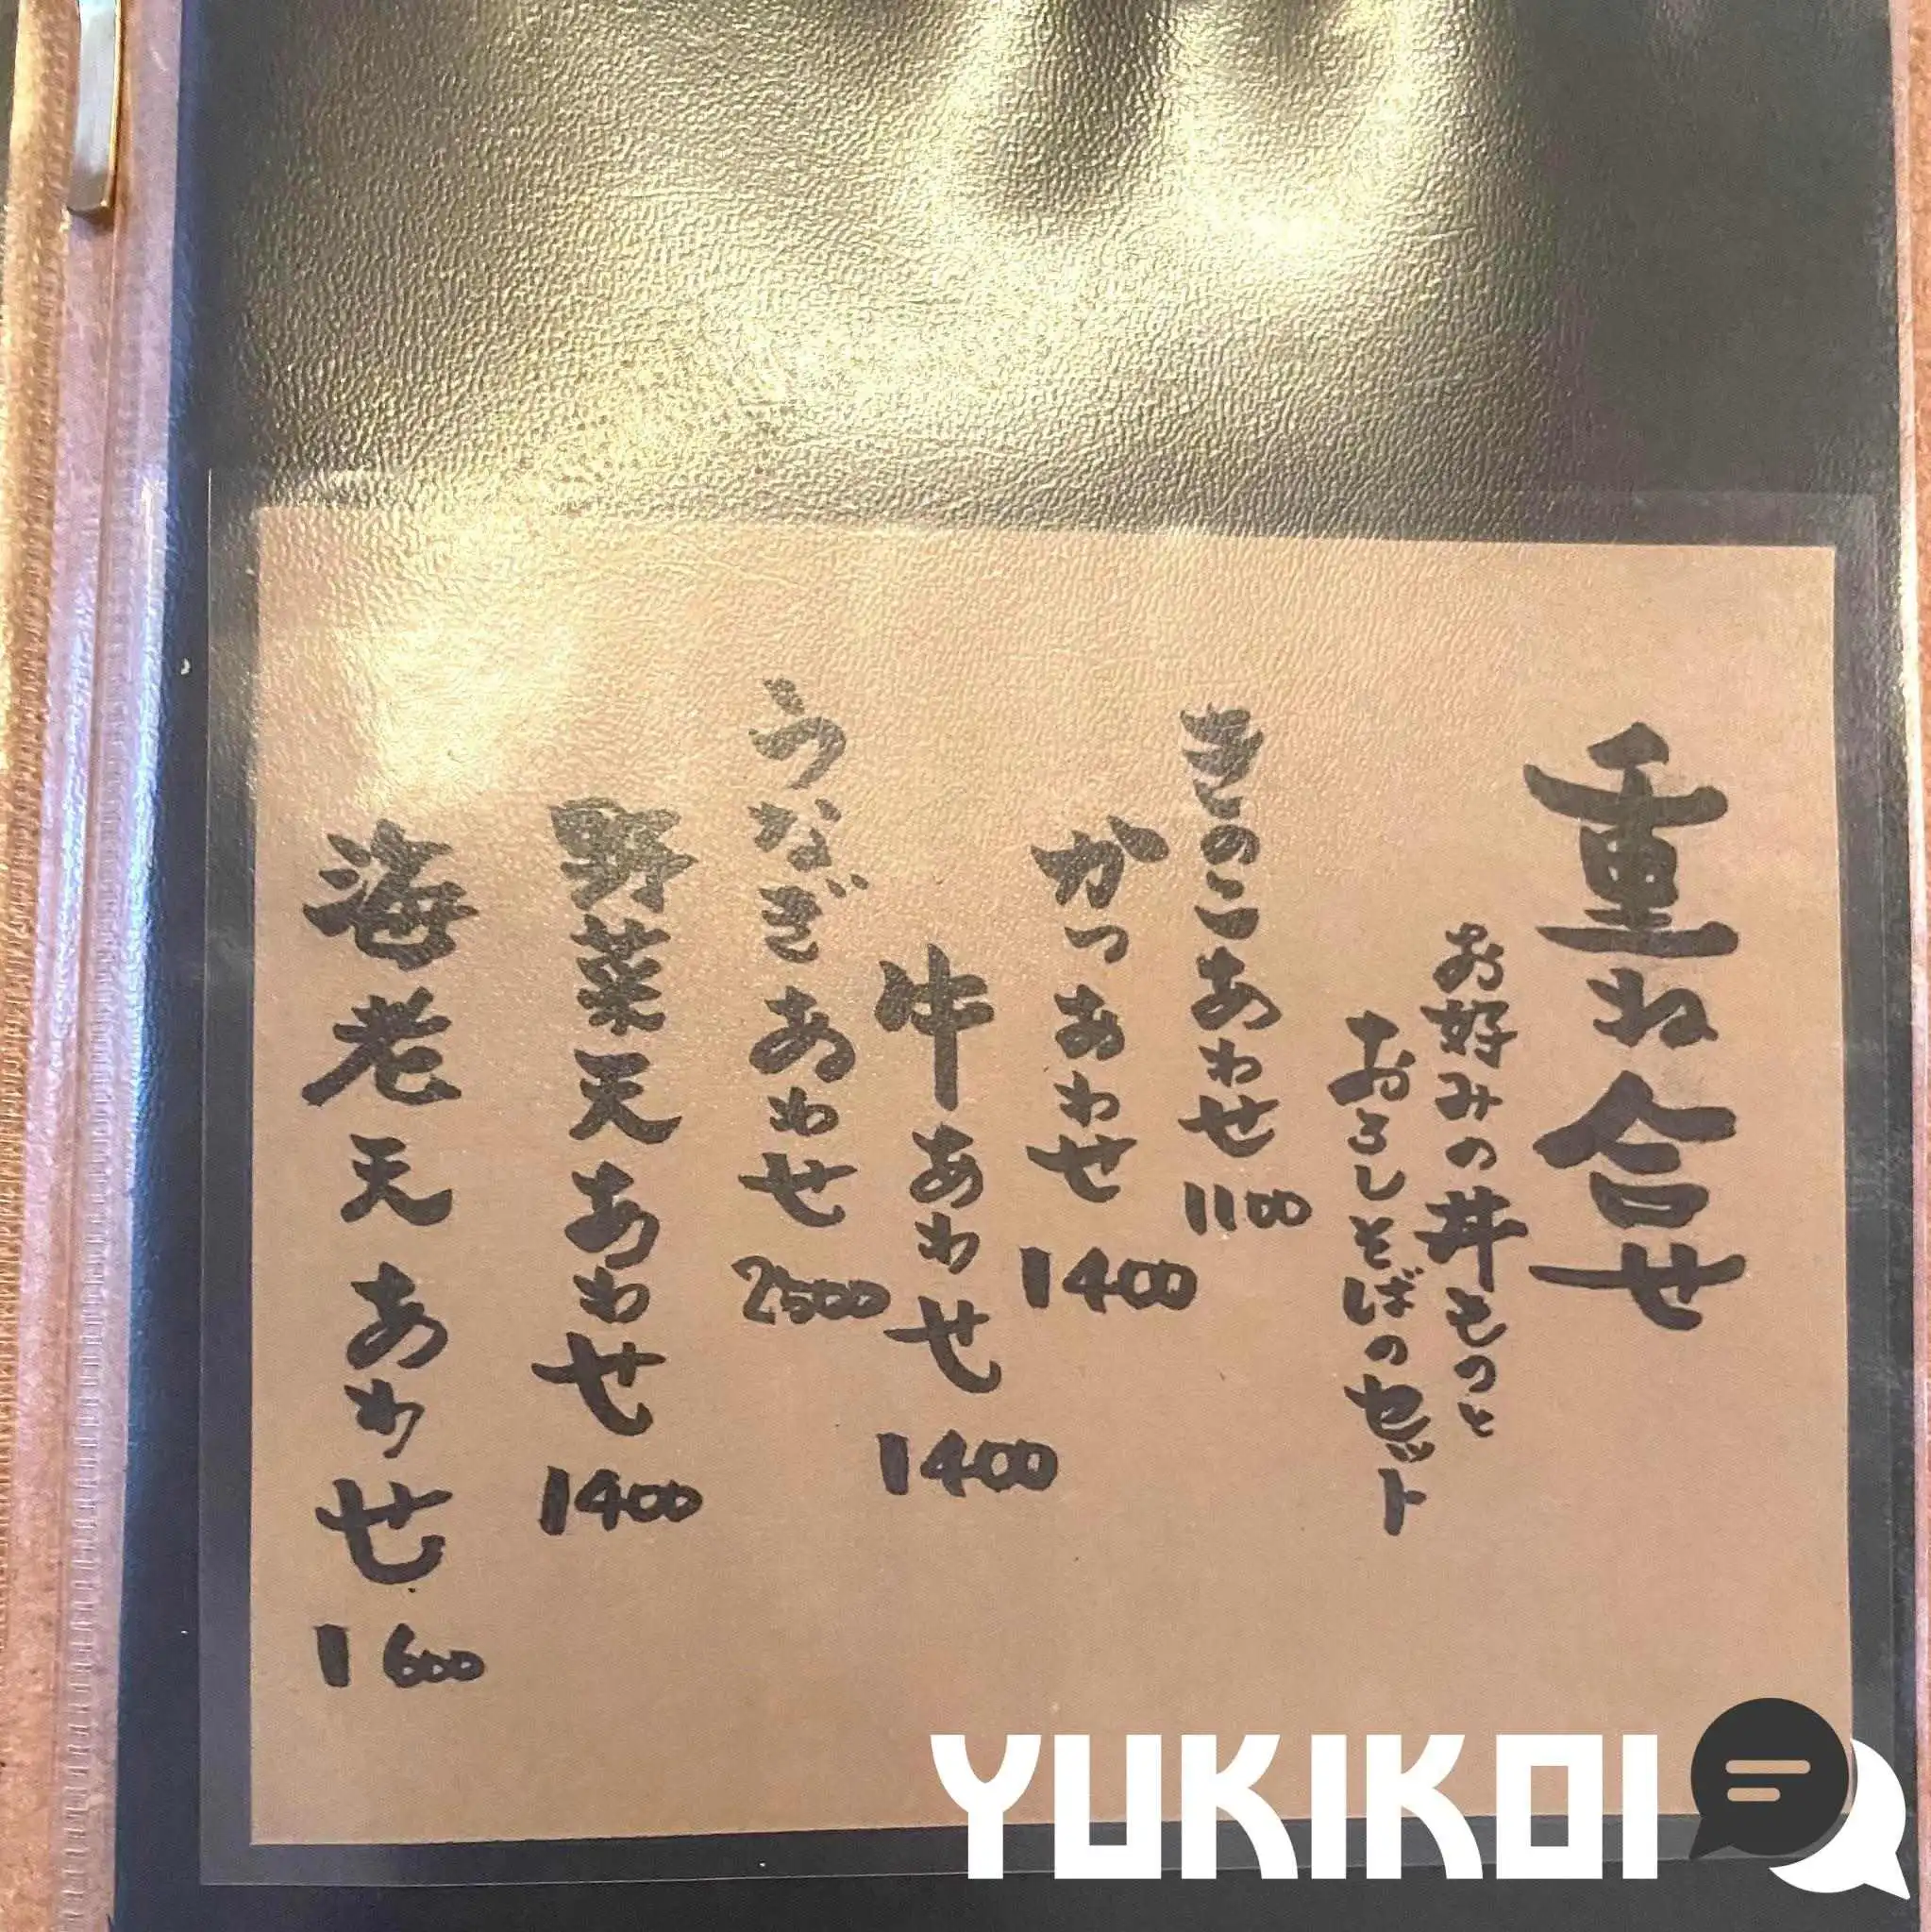 重ね合せ
お好みの丼ものと
おろしそばのセット
きのこあわせ 1100
かつあわせ 1400
牛あわせ 1400
うなぎあわせ 2500
野菜天あわせ 1400
海老天あわせ 1600
YUKIKOI